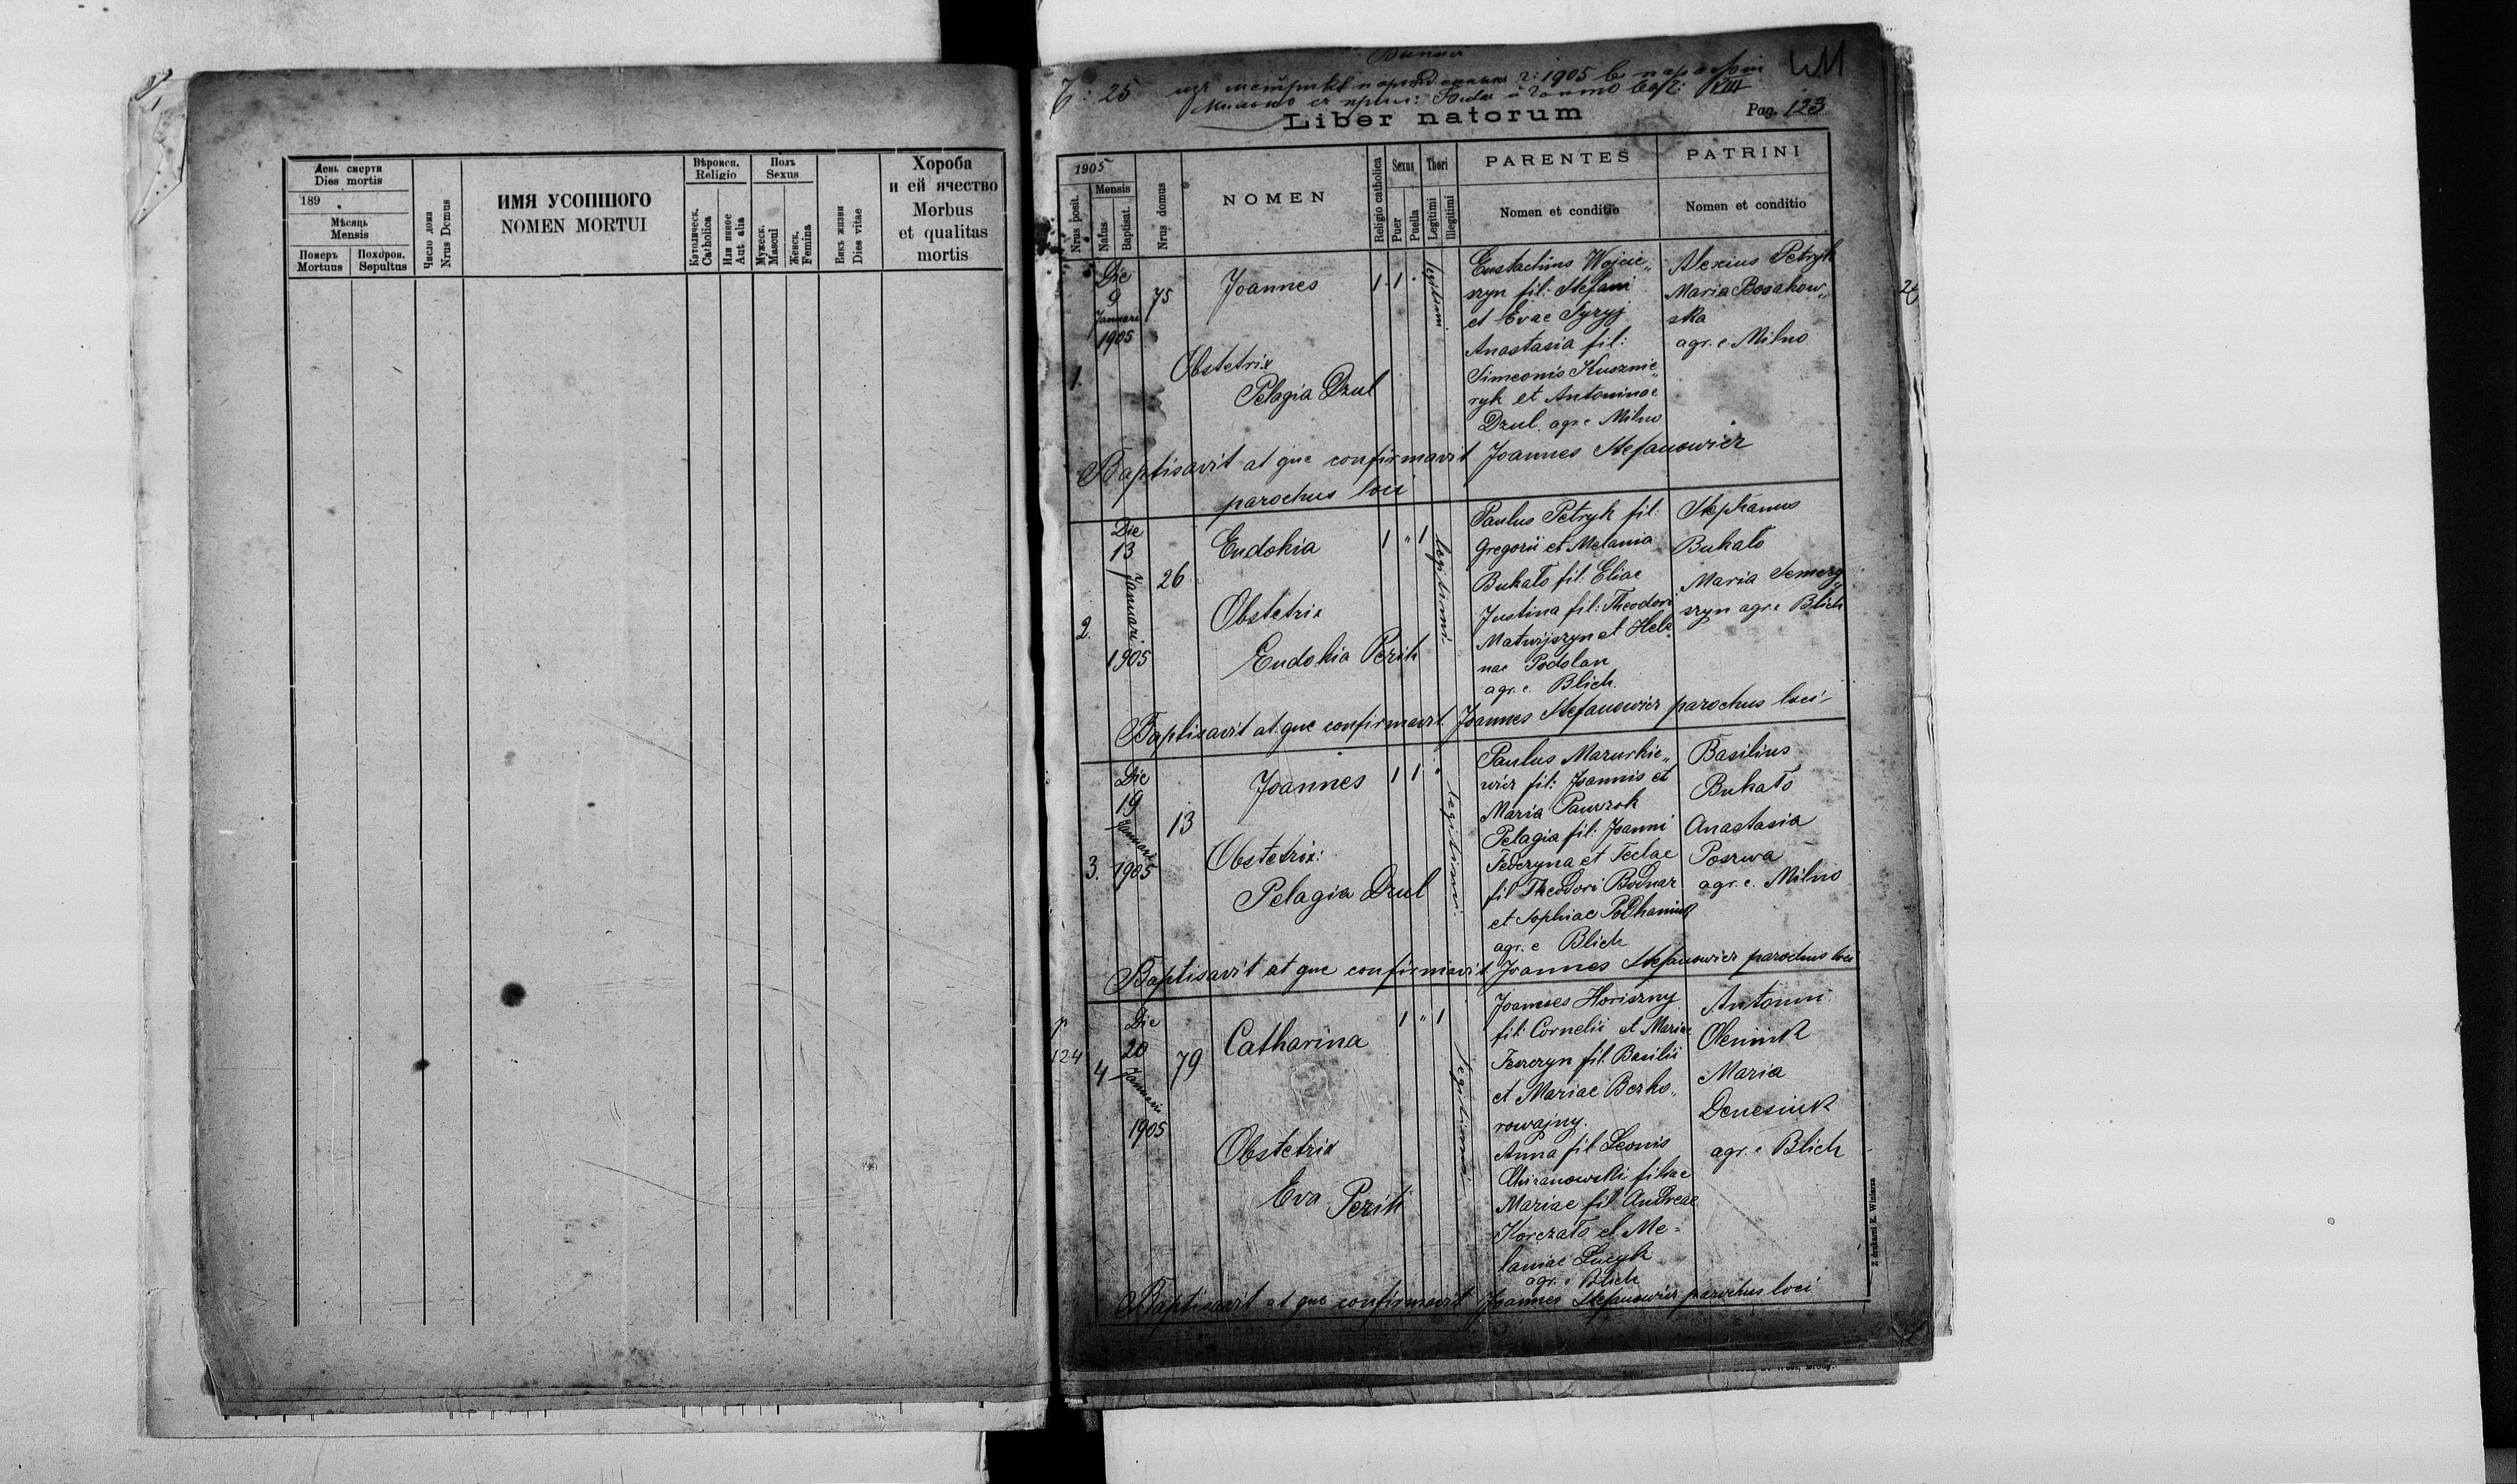 День смерти
Dies mortis
189
Мѣсяць
Mensis
Померъ
Mortuus
Похорон.
Sepultus
Число дома
Nrus Domus
ИМЯ УСОПШОГО
NOMEN MORTUI
Вѣроисп.
Religio
Католическ.
Catholica
Или иное
Aut alia
Полъ
Sexus
Мужеск.
Mascul
Женск.
Femina
Вѣкъ жизни
Dies vitae
Хороба
и ей ячество
Morbus
et qualitas
mortis
1905
Liber natorum
Pag. 123
1905
Nrus posit.
Mensis
Natus
Baptisat.
Nrus domus
NOMEN
Religio catholica
Sexus
Puer
Puella
Thori
Legitimi
Illegitimi
PARENTES
Nomen et conditio
PATRINI
Nomen et conditio
1.
Die
9
Januari
1905
75
Joannes
1 1
legitimi
Obstetrix
Pelagia Dzul
Eustachius Wojcie„
szyn fil: Stefani
et Evae Syryj
Anastasia fil:
Simeonis Kusznie„
ryk et Antoninae
Dzul. agr. e Milno
Alexius Petryk
Maria Bosakow„
ska
agr. e. Milno
Baptisavit at que confirmavit Joannes Stefanowicz
parochus loci
2.
Die
13
Januari
1905
26
Eudokia
1 " 1
legitimi
Obstetrix
Eudokia Perih
Paulus Petryk fil:
Gregorii et Melania
Bukało fil. Eliae
Justina fil: Theodori
Matwijszyn et Hele„
nae Podolan
agr. e. Blich
Stephanus
Bukało
Maria Semerg
szyn agr. e Blich
Baptisavit at que confirmavit Joannes Stefanowicz parochus loci
3.
Die
19
Januari
1905
13
Joannes
1 1 "
legitimi
Obstetrix:
Pelagia Dzul
Paulus Mazurkie„
wicz fil: Joannis et
Maria
Pelagia fil: Joanni
Federyna et Teclae
fil Theodori Bodnar
et Sophiae Podhaniuk
agr. e Blich
Basilius
Bukało
Anastasia
Poszwa
agr. e. Milno
Baptisavit at que confirmavit Joannes Stefanowicz parochus loci
p
124
4
Die
20
Januarii
1905
79
Catharina
1 " 1
legitimi
Obstetrix
Eva Perih
Joannes Horiszny
fil: Cornelii et Mariae
fil. Basilii
et Mariae Bezko„
rowajny.
Anna fil Leonis
filiae
Mariae fil Andreae
Korczało et Me=
laniae Lucyk
agr. e Blich
Antonni
Oleniuk
Maria
Denesiuk
agr. e Blich
Baptisavit at que confirmavit Joannes Stefanowicz parochus loci
Z drukarni E. Winiarza